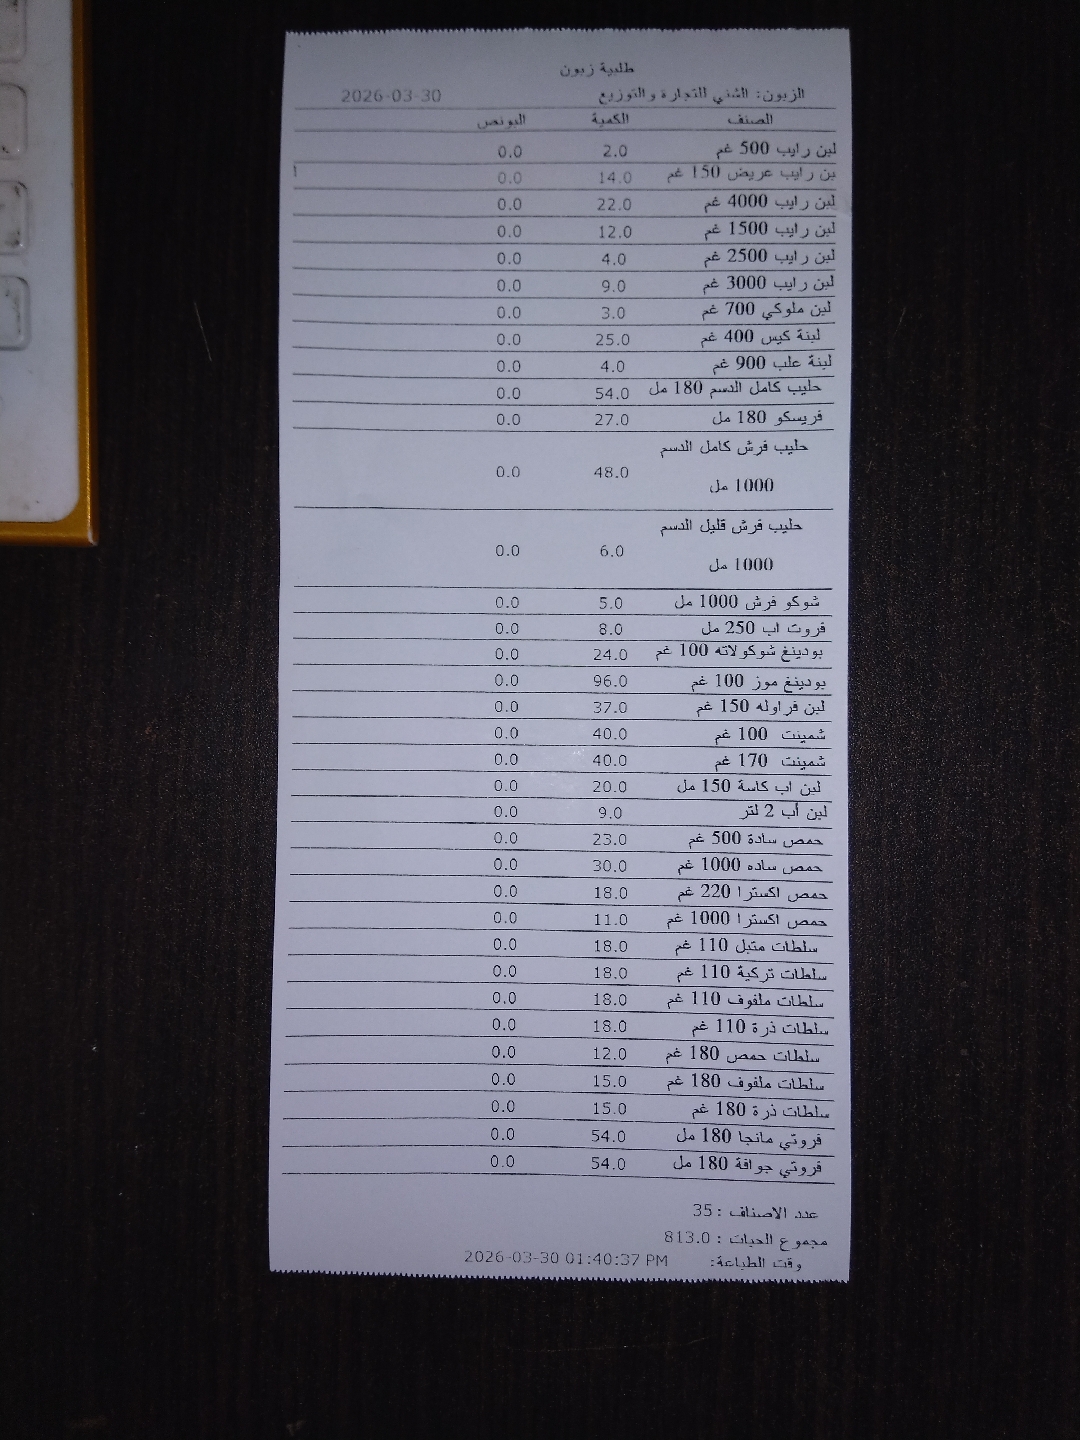 طلبية زبون
الزبون: الشني للتجارة والتوزيع 2026-03-30
الصنف الكمية البونص
لبن رايب 500 غم 2.0 0.0
بن رايب عريض 150 غم 14.0 0.0
لبن رايب 4000 غم 22.0 0.0
لبن رايب 1500 غم 12.0 0.0
لبن رايب 2500 غم 4.0 0.0
لبن رايب 3000 غم 9.0 0.0
لبن ملوكي 700 غم 3.0 0.0
لبنة كيس 400 غم 25.0 0.0
لبنة علب 900 غم 4.0 0.0
حليب كامل الدسم 180 مل 54.0 0.0
فريسكو 180 مل 27.0 0.0
حليب فرش كامل الدسم
1000 مل 48.0 0.0
حليب فرش قليل الدسم
1000 مل 6.0 0.0
شوكو فرش 1000 مل 5.0 0.0
فروت اب 250 مل 8.0 0.0
بودينغ شوكولاته 100 غم 24.0 0.0
بودينغ موز 100 غم 96.0 0.0
لبن فراوله 150 غم 37.0 0.0
شمينت 100 غم 40.0 0.0
شمينت 170 غم 40.0 0.0
لبن اب كاسة 150 مل 20.0 0.0
لبن أب 2 لتر 9.0 0.0
حمص سادة 500 غم 23.0 0.0
حمص ساده 1000 غم 30.0 0.0
حمص اكسترا 220 غم 18.0 0.0
حمص اكسترا 1000 غم 11.0 0.0
سلطات متبل 110 غم 18.0 0.0
سلطات تركية 110 غم 18.0 0.0
سلطات ملفوف 110 غم 18.0 0.0
سلطات ذرة 110 غم 18.0 0.0
سلطات حمص 180 غم 12.0 0.0
سلطات ملفوف 180 غم 15.0 0.0
سلطات ذرة 180 غم 15.0 0.0
فروتي مانجا 180 مل 54.0 0.0
فروتي جوافة 180 مل 54.0 0.0
عدد الاصناف : 35
مجموع الحبات : 813.0
وقت الطباعة: 2026-03-30 01:40:37 PM